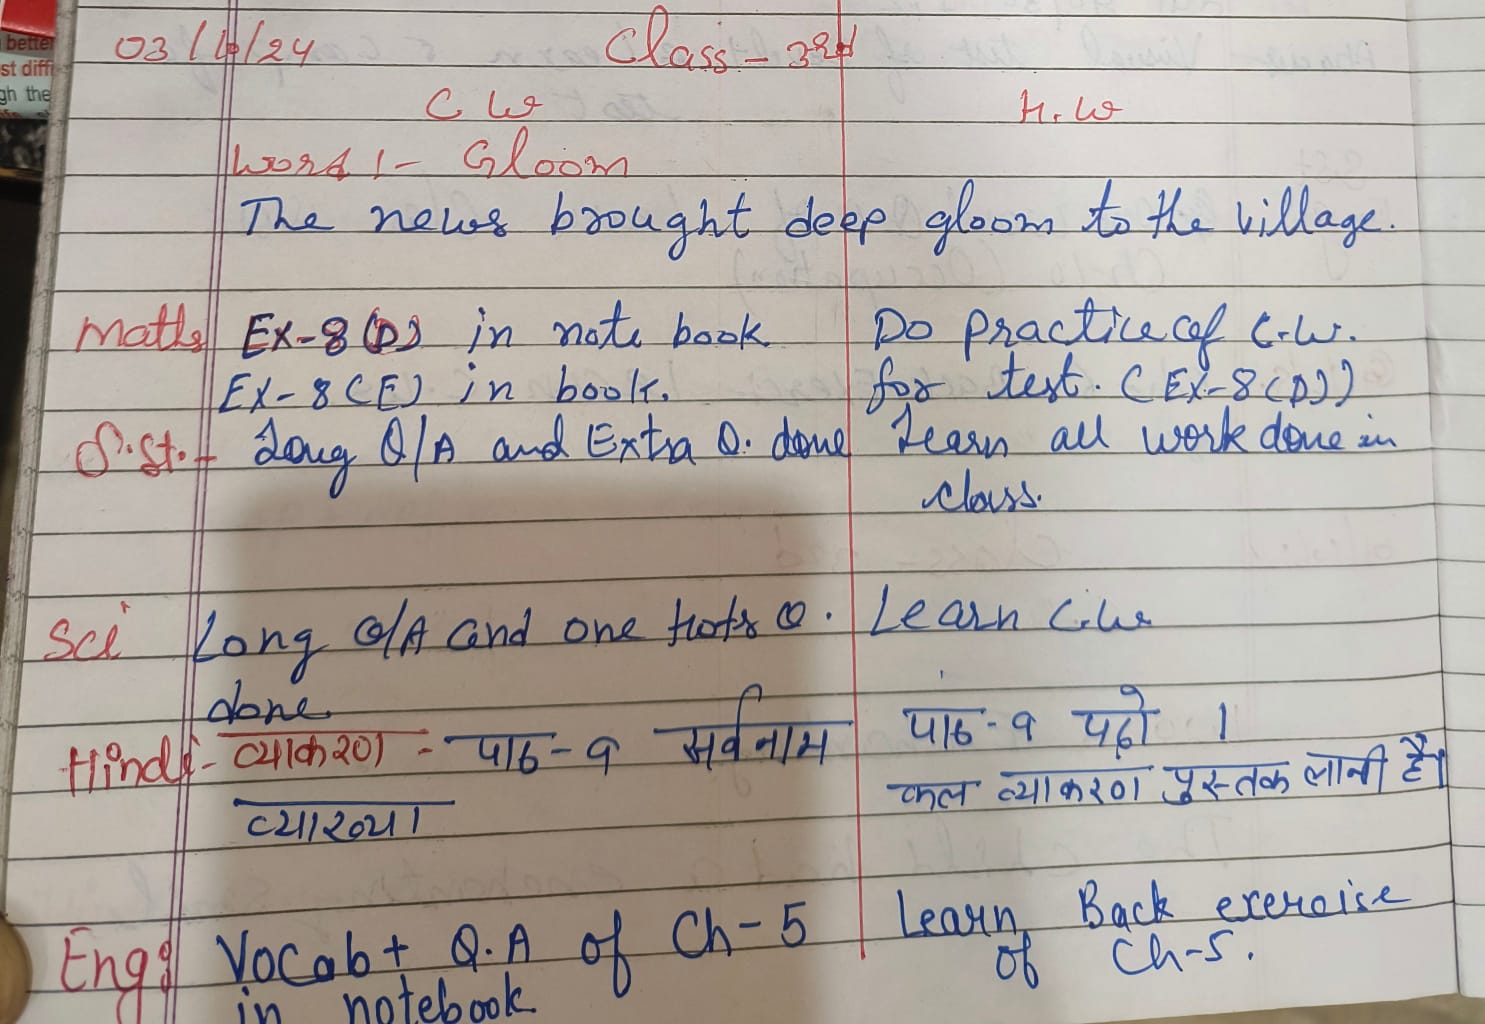 better
st diff
gh the
03/ /24 Class - 3rd
C W H.W
Word 1- Gloom
The news brought deep gloom to the village.
Maths Ex-8(D) in note book Do practice of C.W.
Ex-8(E) in book. for test. (Ex-8(D))
S.St. - Long Q/A and Extra Q. done Learn all work done in
class.
Sci Long Q/A and one hots Q. Learn C.w
done
Hindi - व्याकरण - पाठ-9 सर्वनाम पाठ-9 पढ़ो ।
व्याख्या । कल व्याकरण पुस्तक लानी है।
Eng: Vocab + Q.A of Ch-5 Learn Back exercise
in notebook of Ch-5.